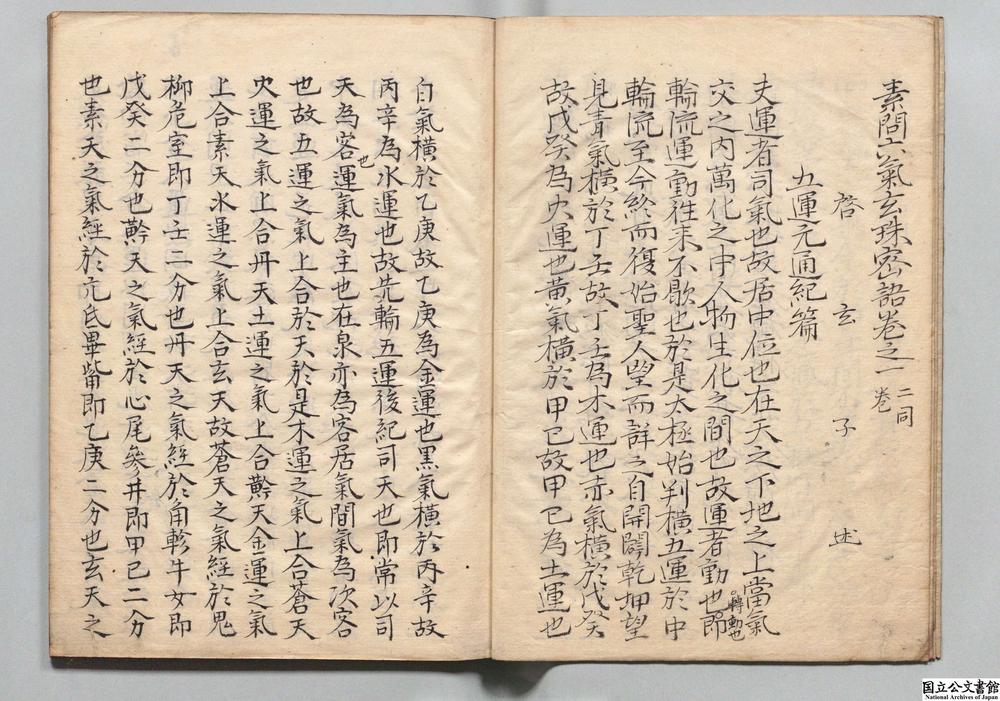 素問六氣玄珠密語卷之一 二同卷
啓玄子述
五運元通紀篇
夫運者司氣也故居中位也在天之下地之上當氣
交之内萬化之中人物生化之間也故運者動也即轉動也
輪流運動徃来不歇也於是太極始判横五運於中
輪流至今終而復始聖人望而詳之自開闢乾坤望
見青氣横於丁壬故丁壬為木運也赤氣横於戊癸
故戊癸為火運也黄氣横於甲己故甲己為土運也
白氣横於乙庚故乙庚為金運也黒氣横於丙辛故
丙辛為水運也故先輪五運後紀司天也即常以司
天為客運氣為主也在泉亦為客居氣間氣為次客
也
也故五運之氣上合於天於是木運之氣上合蒼天
火運之氣上合丹天土運之氣上合黅天金運之氣
上合素天水運之氣上合玄天故蒼天之氣經於鬼
柳危室即丁壬二分也丹天之氣經於角軫牛女即
戊癸二分也黅天之氣經於心尾參井即甲己二分
也素天之氣經於亢氐畢觜即乙庚二分也玄天之
国立公文書館
National Archives of Japan